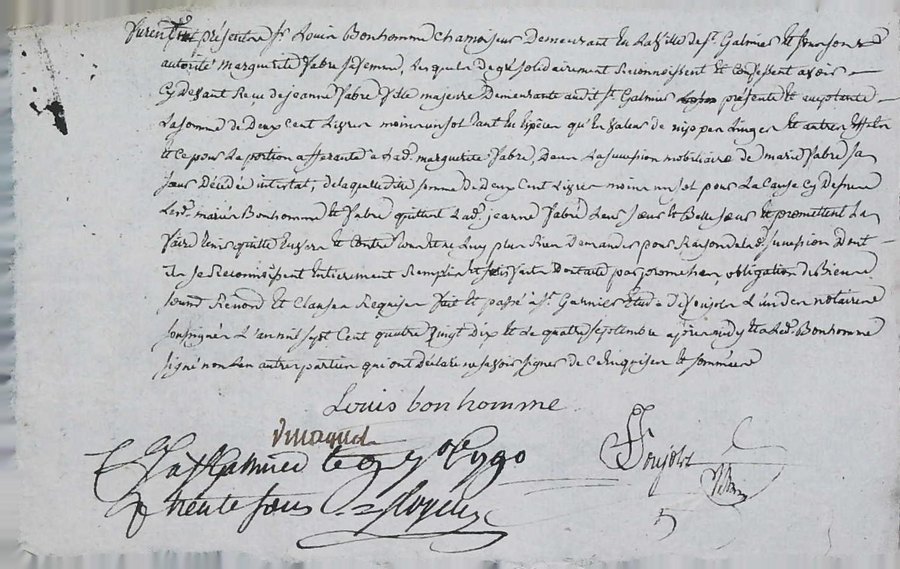 furent présents Sr. Louis Bonhomme chamoiseur Demeurant en la Ville de St. Galmier Et
autorité marguerite fabre sa femme, lesquels de gré solidairement Reconnoissent Et Confessent avoir
Cy Devant Reçu de jeanne fabre fille majeure Demeurante audit St. Galmier présente Et acceptante
La somme de Deux Cent Livres moins un sol tant En Espèces qu'En Valeur de linges Et autres Effets
Et ce pour La portion afferante a lad. marguerite fabre, Dans La succession mobiliaire de marie fabre sa
sœur Décédée intestat; de laquelle ditte somme De Deux Cent Livres moins un sol pour La Cause Cy Dessus
Lesd. mariés Bonhomme Et fabre quittent Lad. jeanne fabre Leur sœur Et Belle sœur Et promettent La
faire tenir quitte Envers Et Contre tous Et ne Luy plus Rien Demander pour Raison de lad. succession Dont
ils se Reconnoissent Entierement Remplis Et satisfaits Dont acte par promesses, obligation de Biens
soum. Renond. Et Clauses Requises fait Et passé a St. Galmier Etude de Soujols L'un des notaires
soussignés L'an mil sept Cent quatre Vingt Dix Et Le quatre septembre après midy Et a led. Bonhomme
signé non Les autres parties qui ont Déclaré ne savoir signer de Ce Enquises Et sommées
Louis bonhomme
a St Galmier le 9 7bre 1790
trente sous
Soujols